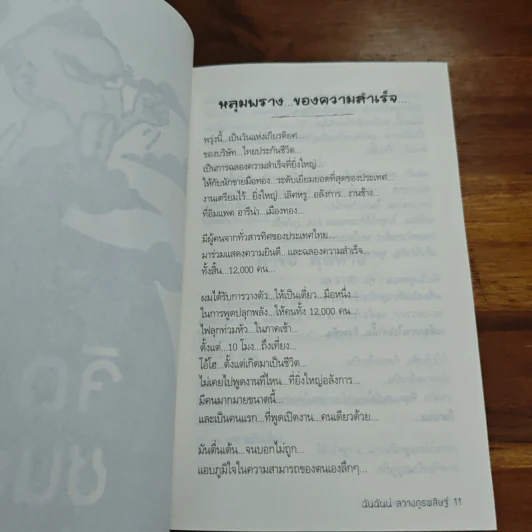 หลุมพราง...ของความสำเร็จ...
พรุ่งนี้...เป็นวันแห่งเกียรติยศ
ของบริษัท...ไทยประกันชีวิต...
เป็นการฉลองความสำเร็จที่ยิ่งใหญ่...
ให้กับนักขายมือทอง...ระดับเยี่ยมยอดที่สุดของประเทศ...
งานเตรียมไว้...ยิ่งใหญ่...เลิศหรู...อลังการ...งานช้าง...
ที่อิมแพค อารีน่า...เมืองทอง...
มีผู้คนจากทั่วสารทิศของประเทศไทย...
มาร่วมแสดงความยินดี...และฉลองความสำเร็จ...
ทั้งสิ้น...12,000 คน...
ผมได้รับการวางตัว...ให้เป็นเดี่ยว...มือหนึ่ง...
ในการพูดปลุกพลัง...ให้คนทั้ง 12,000 คน...
ไฟลุกท่วมหัว...ในภาคเช้า...
ตั้งแต่...10 โมง...ถึงเที่ยง...
โอ้โฮ...ตั้งแต่เกิดมาเป็นชีวิต...
ไม่เคยไปพูดงานที่ไหน...ที่ยิ่งใหญ่อลังการ...
มีคนมากมายขนาดนี้...
และเป็นคนแรก...ที่พูดเปิดงาน...คนเดียวด้วย...
มันตื่นเต้น...จนบอกไม่ถูก...
แอบภูมิใจในความสามารถของตนเองลึกๆ...
ฉันฉันน์ สวางกูรพสิษฐ์ 11